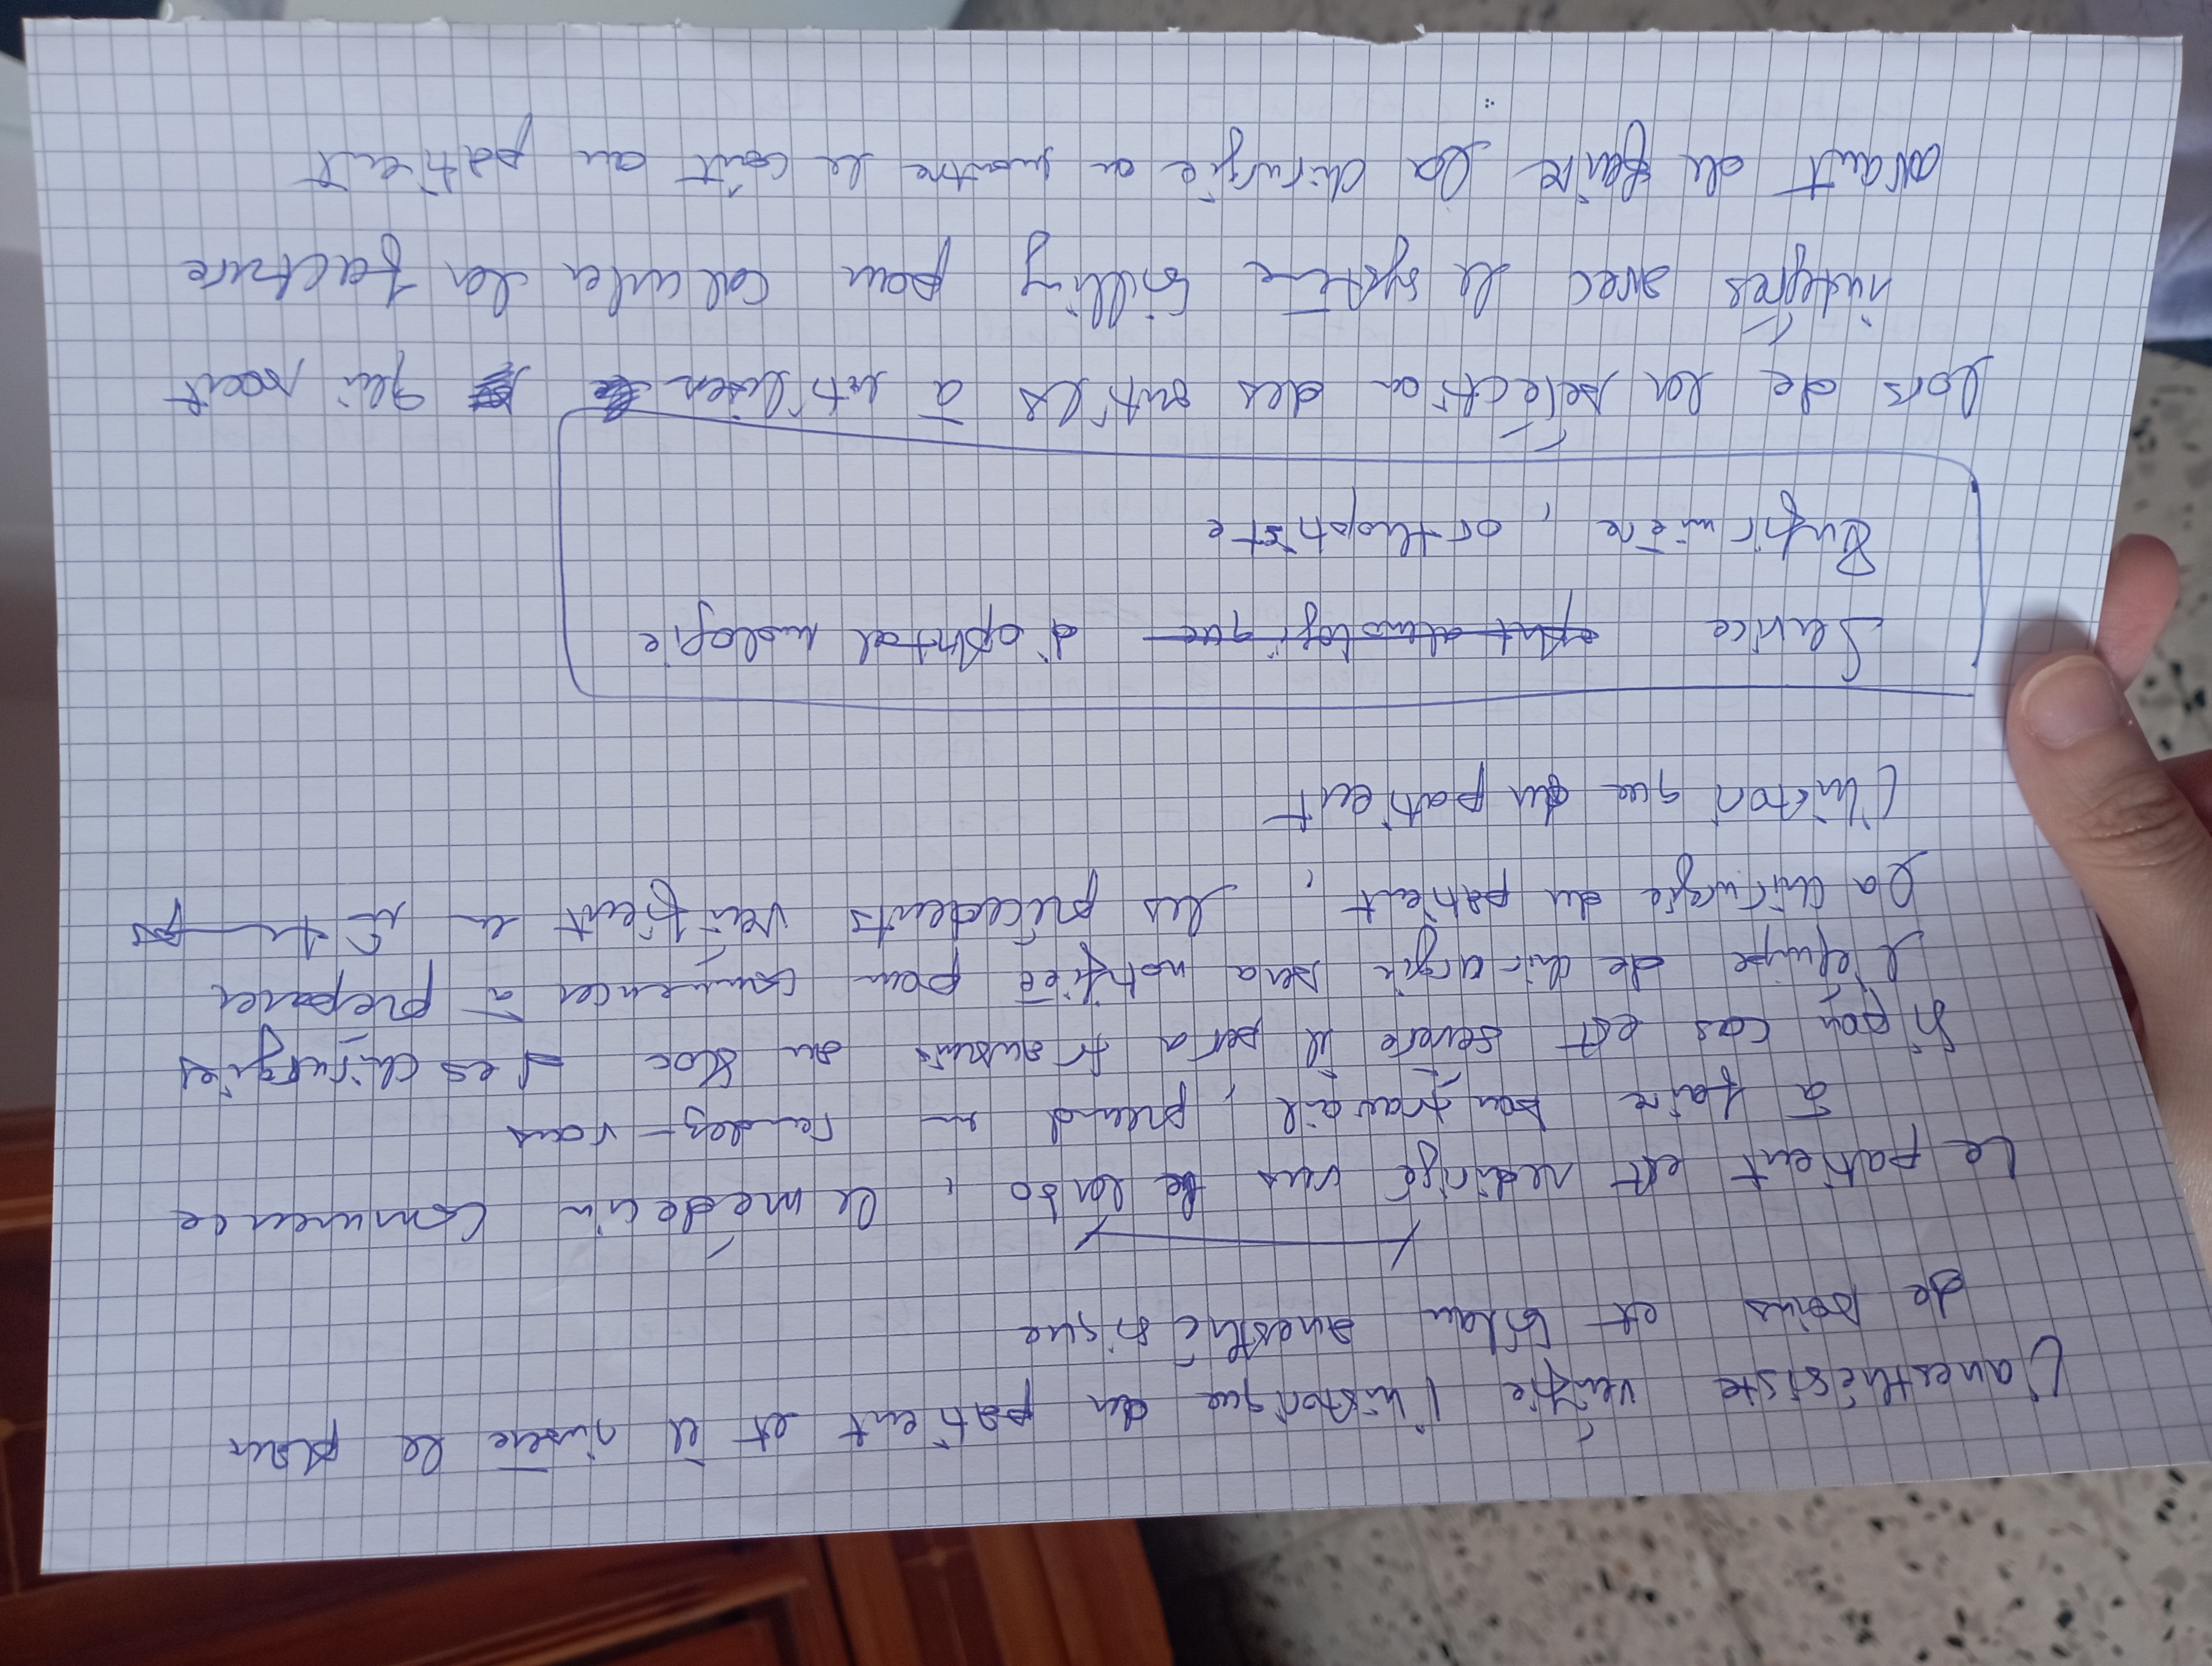 L'anesthésiste vérifie l'historique du patient et il insère le plan
de soins et bilan anesthésique
Le patient est redirigé vers le labo, le médecin commence
à faire son travail, prend un randez-vous
si son cas est sévère il sera transmis au bloc des chirurgies
l'équipe de chirurgie sera notifiée pour commencer à préparer
la chirurgie du patient, les précédents vérifient
l'historique du patient
Service ophtalmologique d'ophtalmologie
Infirmière, orthoptiste
lors de la sélection des outils à utiliser qui sont
intégrés avec le système billing pour calculer la facture
avant de faire la chirurgie on montre le coût au patient